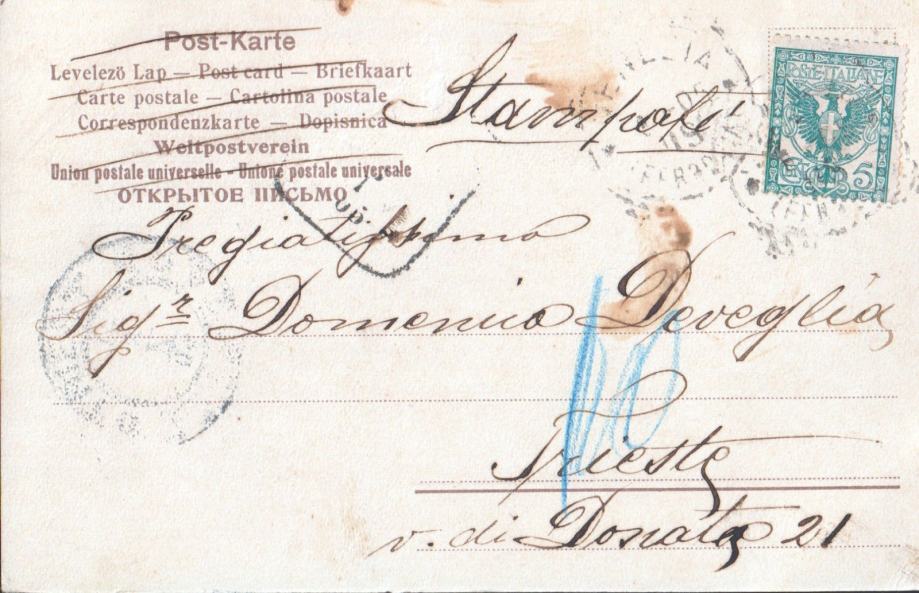 Post-Karte
Levelező Lap — Post card — Briefkaart
Carte postale — Cartolina postale
Correspondenzkarte — Dopisnica
Weltpostverein
Union postale universelle - Unione postale universale
ОТКРЫТОЕ ПИСЬМО
Stampate
POSTE ITALIANE
CENT. 5
VENEZIA
FERROVIA
Pregiatissimo
Sigr Domenico Deveglia
Trieste
v. di Donata 21